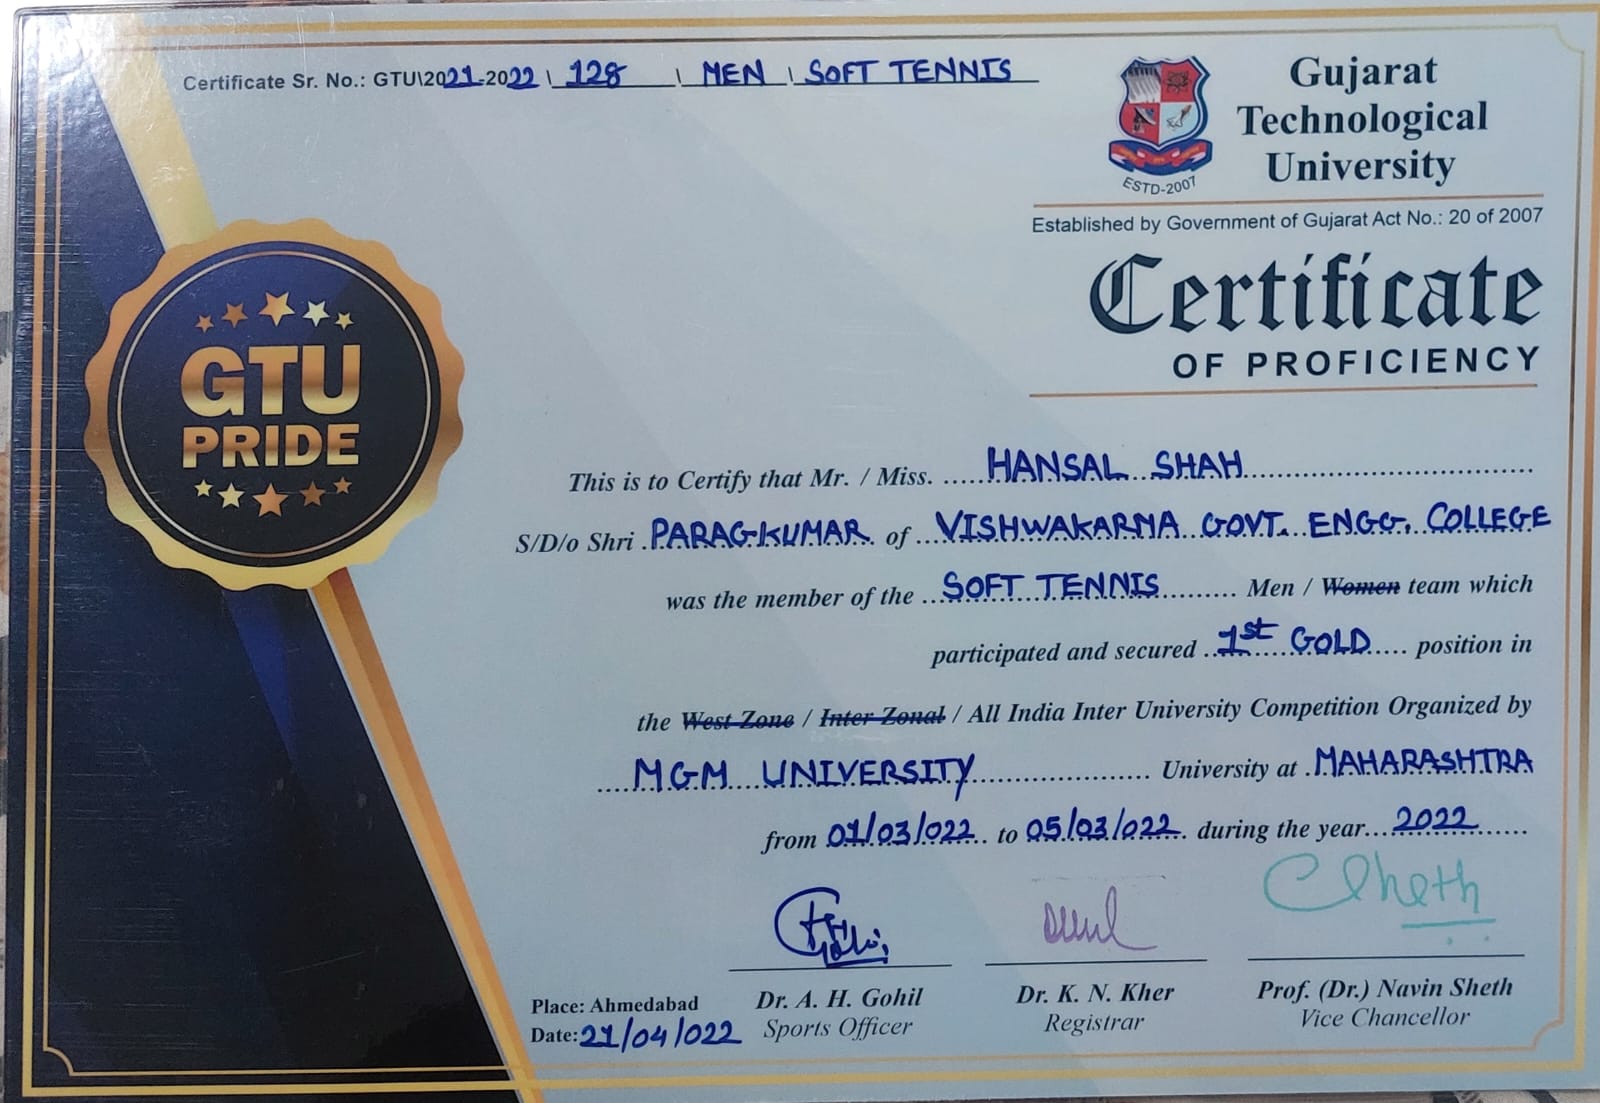 Certificate Sr. No.: GTU\2021-2022 \ 128 \ MEN \ SOFT TENNIS
Gujarat
Technological
University
ESTD-2007
Established by Government of Gujarat Act No.: 20 of 2007
Certificate
OF PROFICIENCY
GTU
PRIDE
This is to Certify that Mr. / Miss. HANSAL SHAH
S/D/o Shri PARAGKUMAR of VISHWAKARMA GOVT. ENGG. COLLEGE
was the member of the SOFT TENNIS Men / Women team which
participated and secured 1st GOLD position in
the West Zone / Inter Zonal / All India Inter University Competition Organized by
MGM UNIVERSITY University at MAHARASHTRA
from 01/03/022 to 05/03/022 during the year 2022
Dr. A. H. Gohil
Sports Officer
Dr. K. N. Kher
Registrar
Prof. (Dr.) Navin Sheth
Vice Chancellor
Place: Ahmedabad
Date: 21/04/022